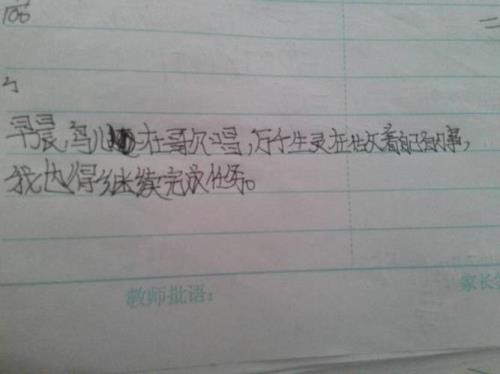 早晨,鸟儿在歌唱,万千生灵在做着自己的事,
我也得继续完成任务。
教师批语: 家长